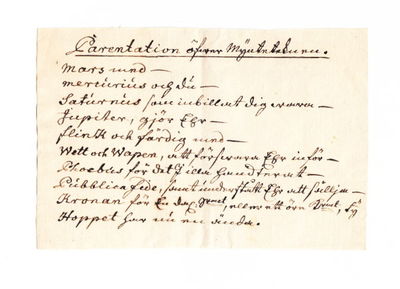 Parentation öfwer Mynteteknen.
Mars med —
mercurius och du —
Saturnus som inbillat dig wara —
Jupiter, gjör Ehr —
flink och färdig med —
Wett och Wapen, att förswara Ehr inför —
Phoebus för det I illa handterat —
Publica fide, samt understått Ehr att sällja —
Kronan för En dal. Symt, eller ett öre Symt, Ty
Hoppet har nu en ända.